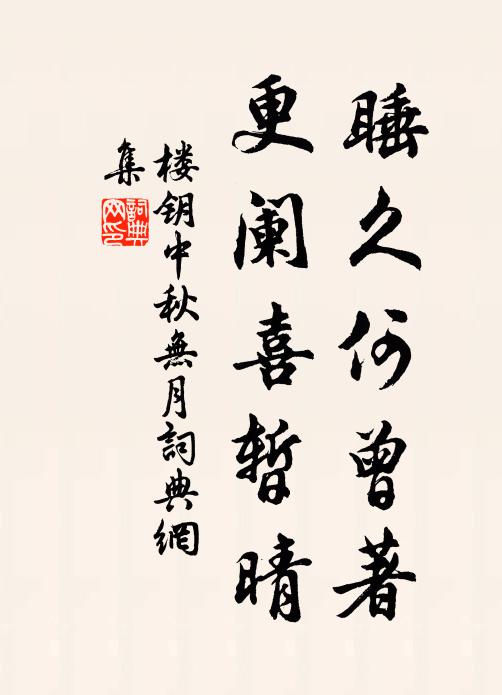 睡久何曾著
更阑喜暂晴
楼钥中秋無月詞典網
集
詞典
网印